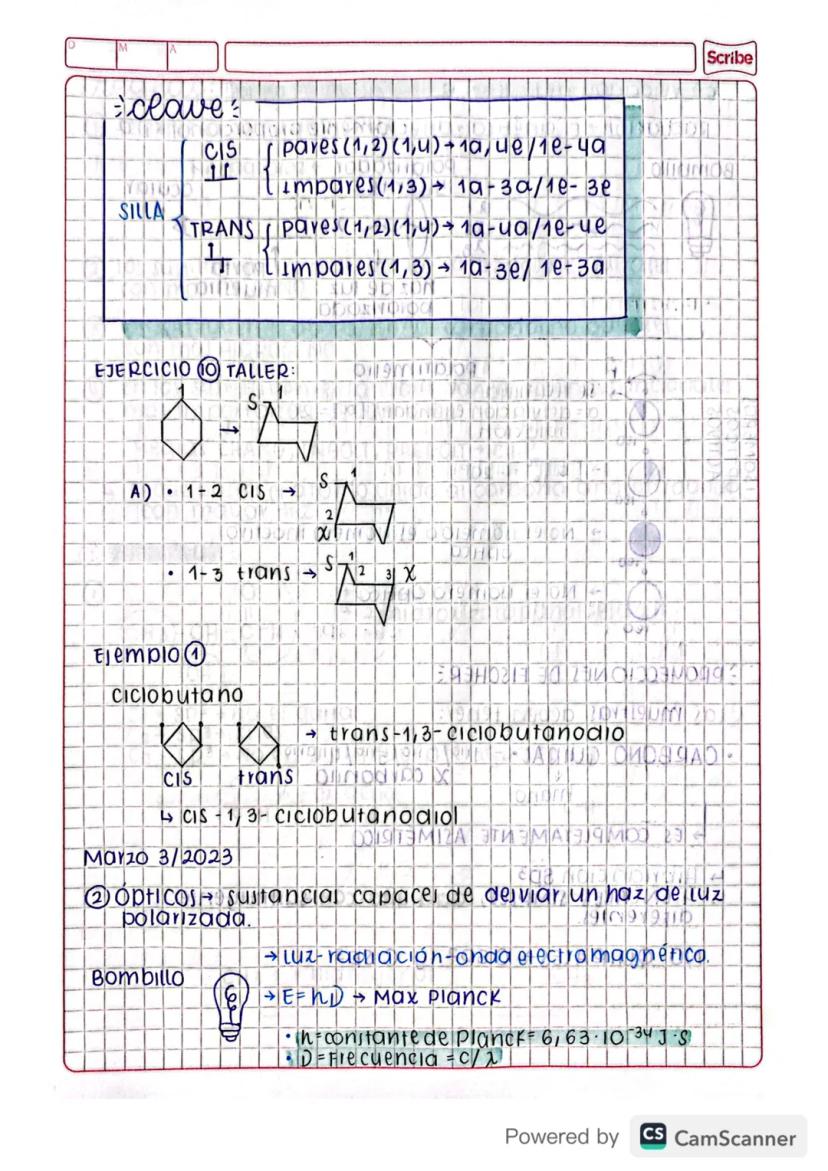 D M A Scribe
clave:
CIS pares (1,2)(1,4) → 1a,4e/1e-4a
impares (1,3) → 1a-3a/1e-3e
SILLA
TRANS pares (1,2)(1,4) → 1a-4a/1e-4e
impares (1,3) → 1a-3e/1e-3a
EJERCICIO ⑩ TALLER:
1 → S 1
A) • 1-2 CIS → S 1
2
X
• 1-3 trans → S 1 2 3 X
Ejemplo ①
ciclobutano
→ trans-1,3-ciclobutanodio
cis trans
↳ cis -1,3- ciclobutanodiol
Marzo 3/2023
② ÓPticos → sustancias capaces de desviar un haz de luz
polarizada.
→ Luz-radiación-onda electromagnética.
Bombillo
→ E=hν → Max Planck
• h=constante de Planck= 6,63·10⁻³⁴ J·S
• ν=Frecuencia = c/λ
Powered by CS CamScanner